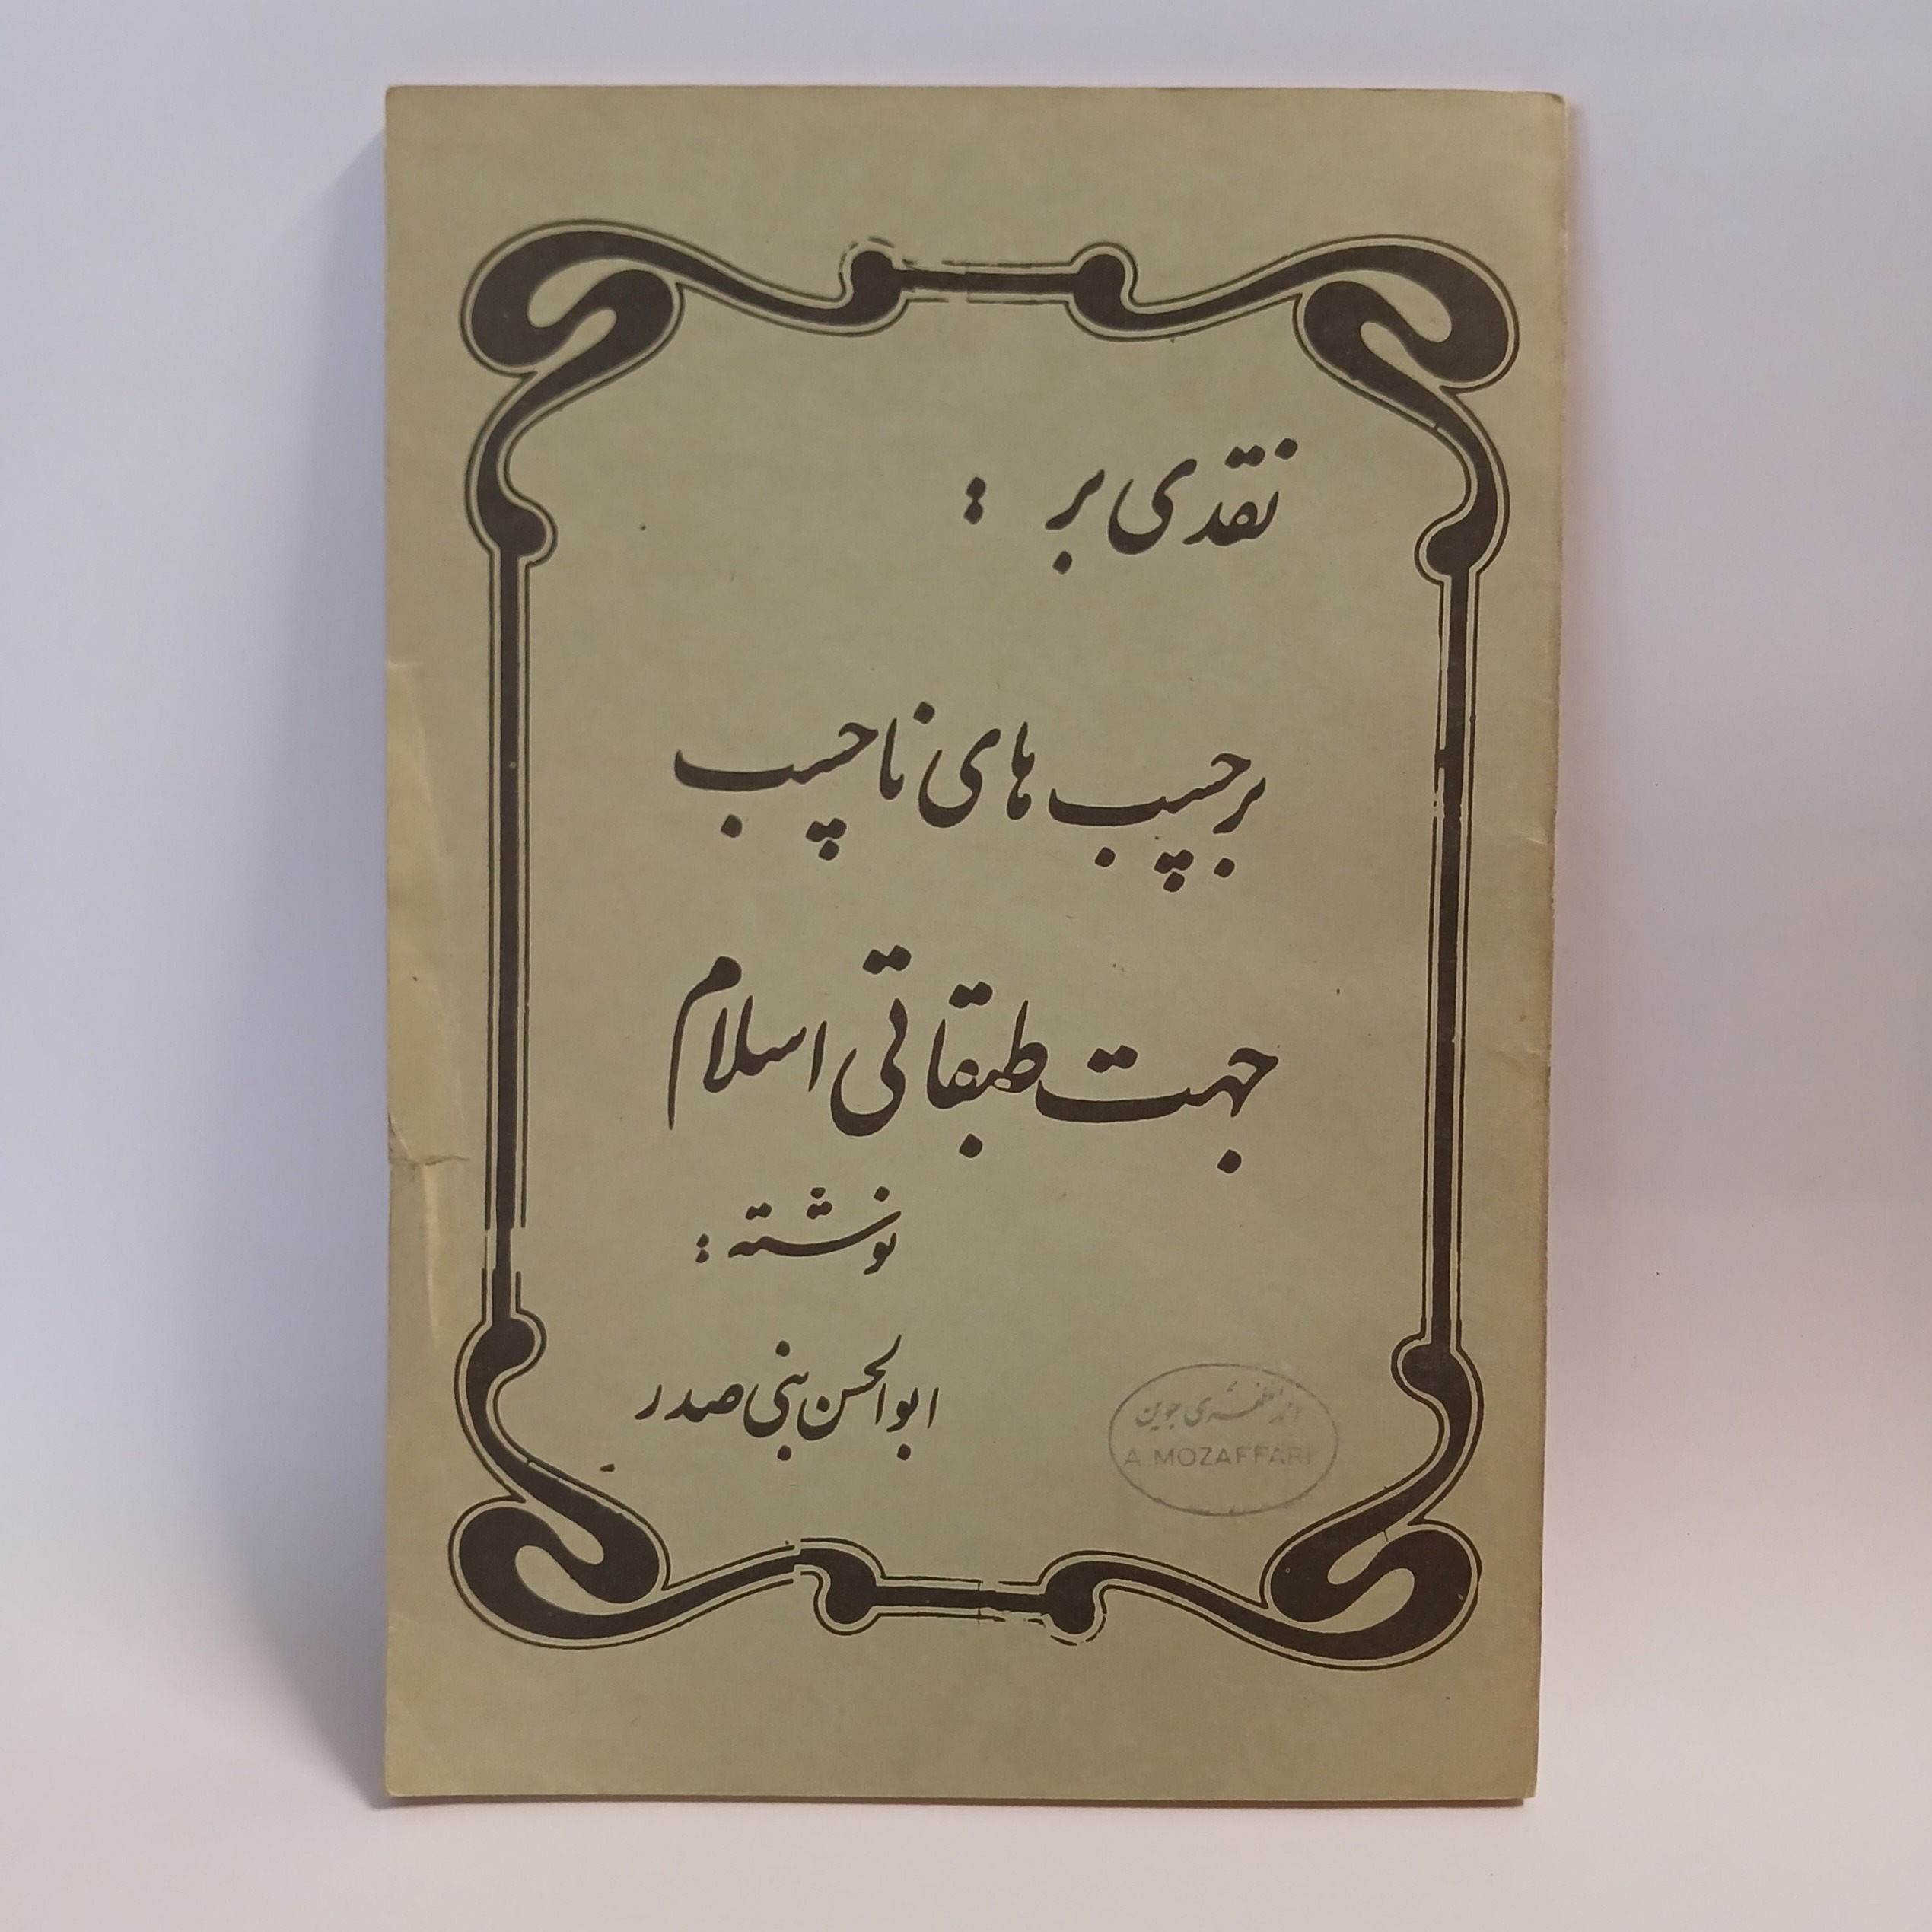 نقدی بر :
برچسب های ناچسب
جهت طبقاتی اسلام
نوشته :
ابوالحسن بنی صدر
مظفری جوین
A. MOZAFFARI